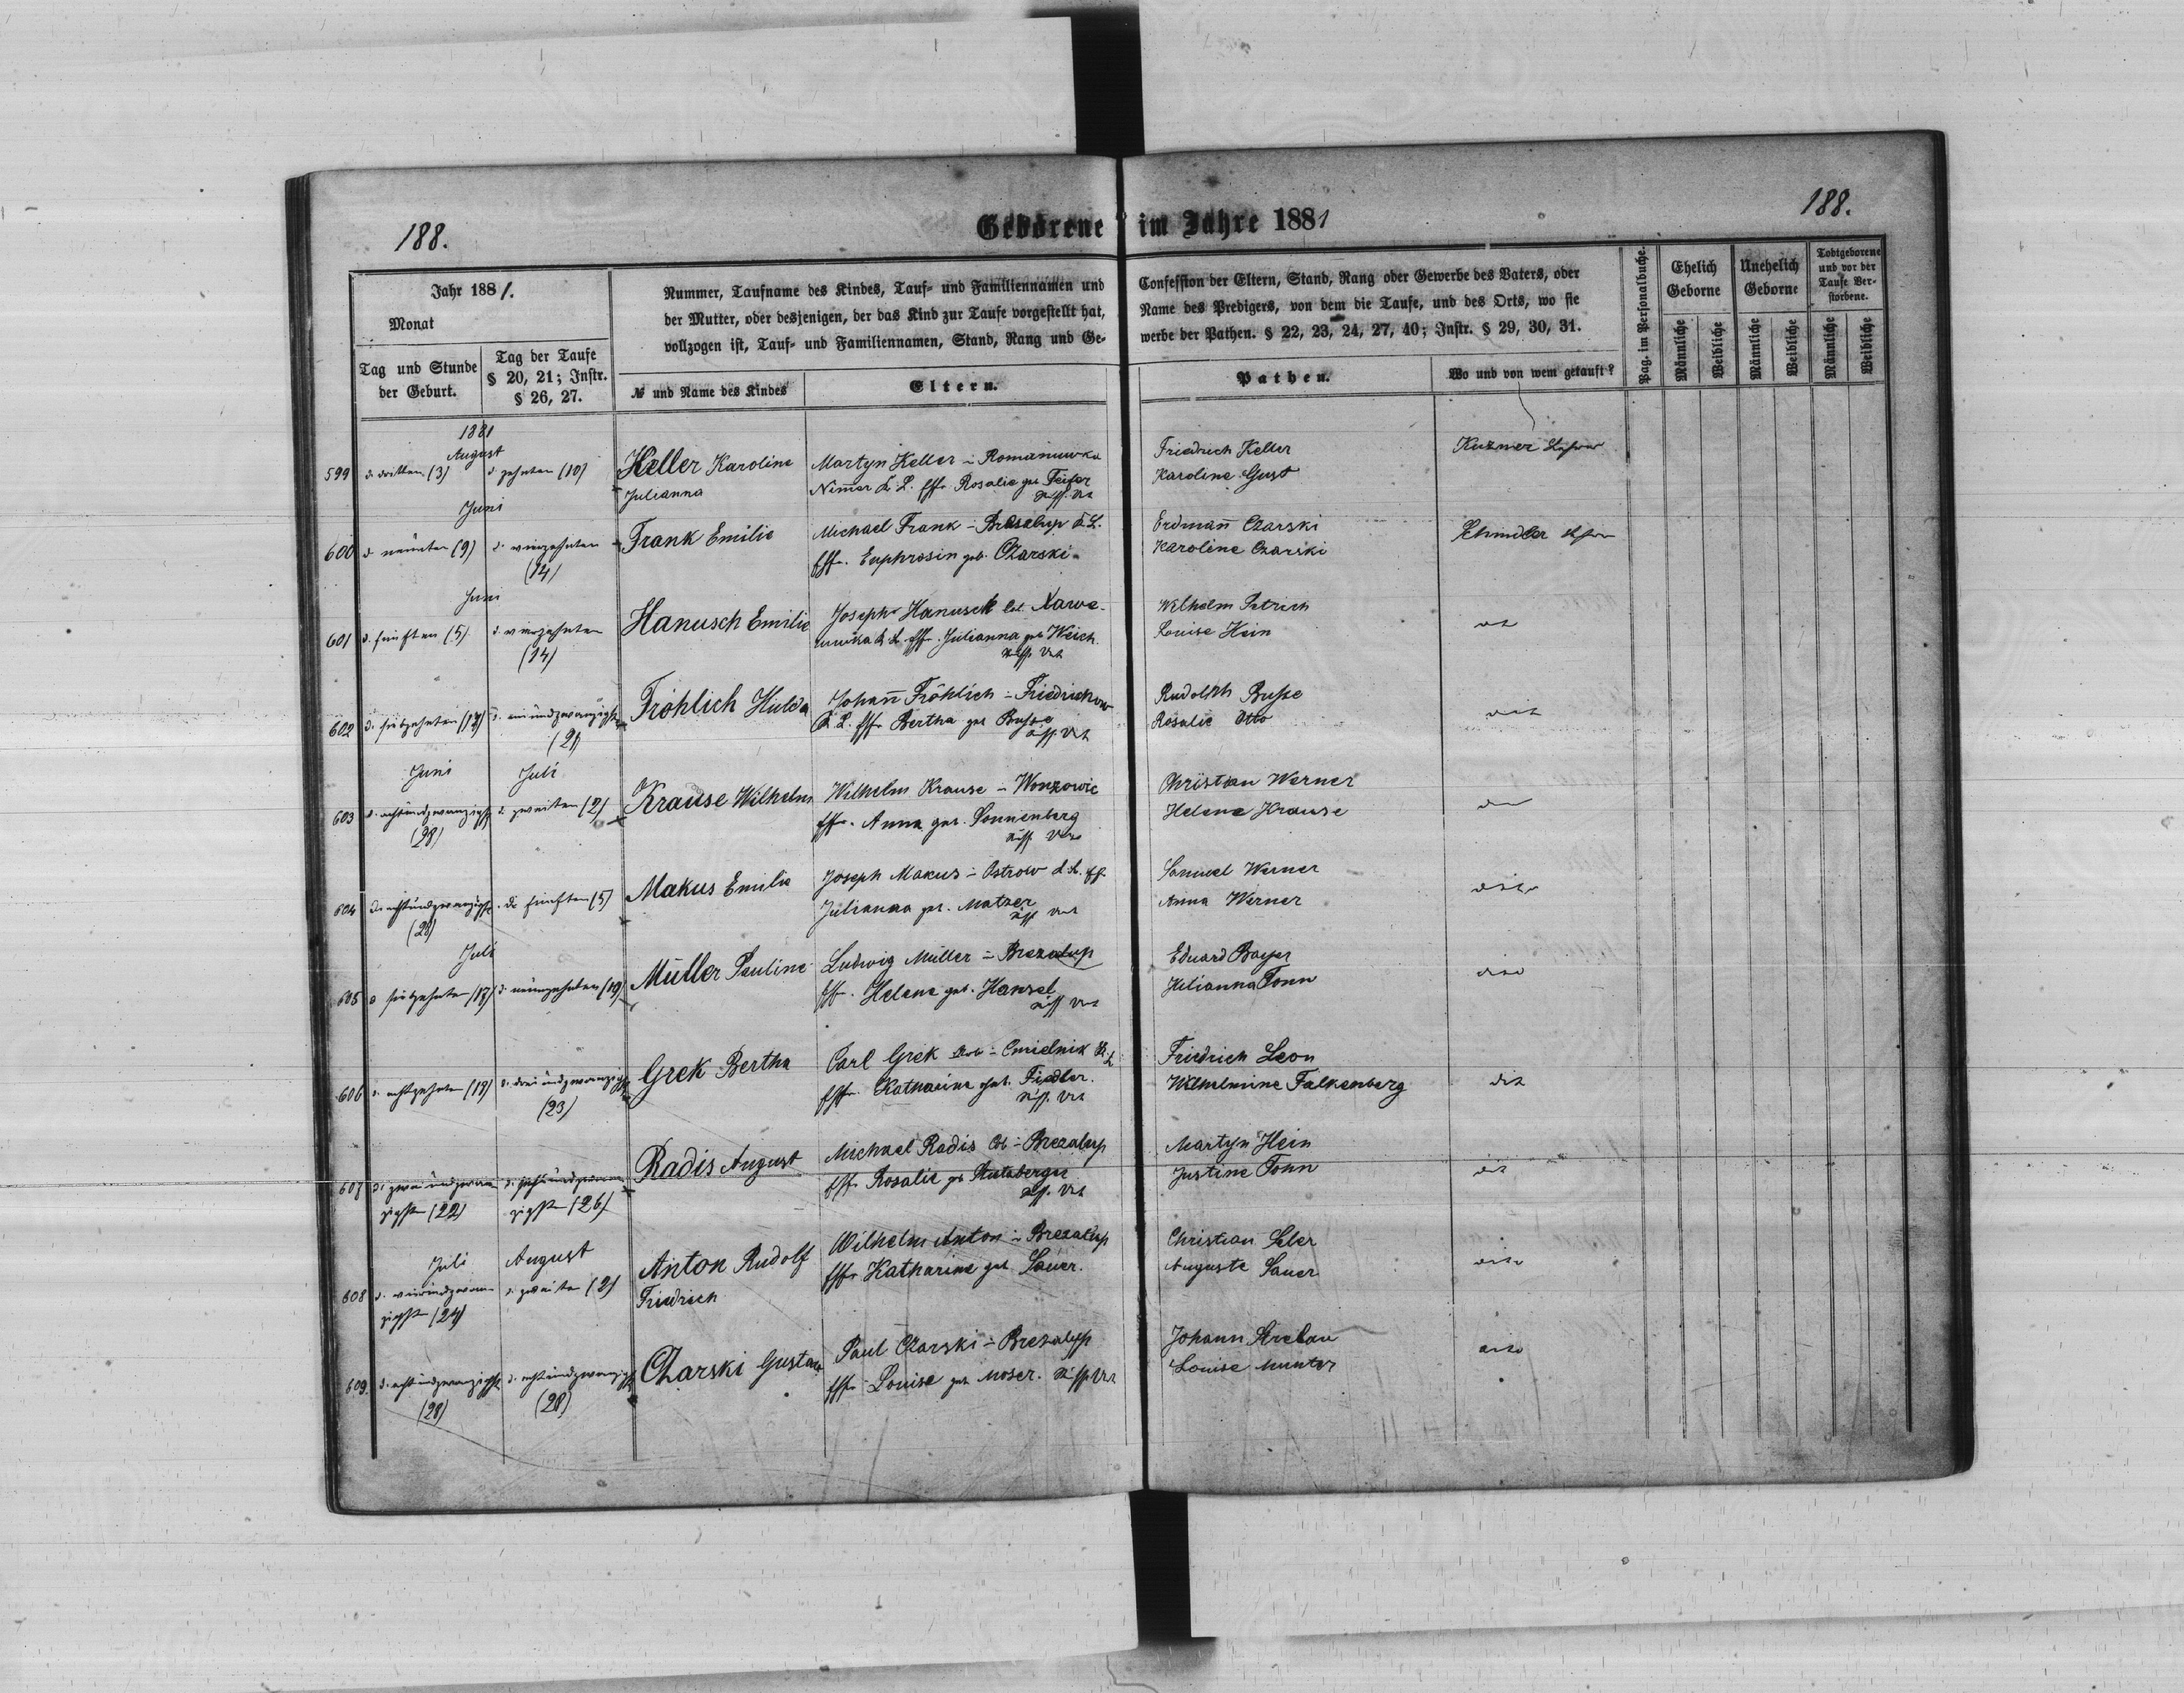 188.
Geborene im Jahre 1881
188.
Jahr 1881.
Monat
Tag und Stunde
der Geburt.
Tag der Taufe
§ 20, 21; Instr.
§ 26, 27.
Nummer, Taufname des Kindes, Tauf- und Familiennamen und
der Mutter, oder desjenigen, der das Kind zur Taufe vorgestellt hat,
vollzogen ist, Tauf- und Familiennamen, Stand, Rang und Ge-
№ und Name des Kindes
Eltern.
Confession der Eltern, Stand, Rang oder Gewerbe des Vaters, oder
Name des Predigers, von dem die Taufe, und des Orts, wo sie
werbe der Pathen. § 22, 23, 24, 27, 40; Instr. § 29, 30, 31.
Pathen.
Wo und von wem getauft?
Pag. im Personalbuche.
Ehelich
Geborne
Unehelich
Geborne
Todtgeborene
und vor der
Taufe Ver-
storbene.
Männliche
Weibliche
Männliche
Weibliche
Männliche
Weibliche
1881
August
599
d. dritten (3)
d. zehnten (10)
Keller Karoline
Julianna
Martyn Keller - Romanuwka
Rosalie geb Feifer
Friedrich Keller
Karoline Gust
Kuzmer
Juni
600
d. neunten (9)
d. vierzehnten
(14)
Frank Emilie
Michael Frank - Brezalup
Euphrosin geb. Czarski
Erdmañ Czarski
Karoline Czarski
Juni
601
d. fünften (5)
d. vierzehnten
(14)
Hanusch Emilie
Joseph Hanusch
Julianna geb Weich
Wilhelm Petrich
Louise Hein
602
d. siebzehnten (17)
d. einundzwanzigst
(21)
Fröhlich Hulda
Johañ Fröhlich - Friedrichow
Bertha geb Busse
Rudolph Busse
Rosalie Otto
Juni
Juli
603
d. achtundzwanzigst
(28)
d. zweiten (2)
Krause Wilhelm
Wilhelm Krause - Wonzowic
Anna geb. Sonnenberg
Christian Werner
Helena Krause
604
d. achtundzwanzigst
(28)
d. fünften (5)
Makus Emilie
Joseph Makus - Ostrow
Julianna geb. Matzer
Samuel Werner
Anna Werner
Juli
605
d. siebzehnten (17)
d. neunzehnten (19)
Müller Pauline
Ludwig Müller - Brezalup
Helene geb. Hansel
Eduard Bayer
Julianna Tonn
606
d. achtzehnten (18)
d. dreiundzwanzigst
(23)
Grek Bertha
Carl Grek - Cmielnik
Katharine geb. Fiedler.
Friedrich Leon
Wilhelmine Falkenberg
607
d. zweiundzwan
zigsten (22)
d. sechsundzwan
zigsten (26)
Radis August
Michael Radis - Brezalup
Rosalie geb
Martyn Hein
Justine Tonn
Juli
August
608
d. vierundzwan
zigsten (24)
d. zweiten (2)
Anton Rudolf
Friedrich
Wilhelm Anton - Brezalup
Katharine geb Sauer.
Christian
Auguste Sauer
609.
d. achtundzwanzigst
(28)
d. achtundzwanzigst
(28)
Czarski Gustav
Paul Czarski - Brezalup
Louise geb Moser.
Johann Strelau
Louise Munter